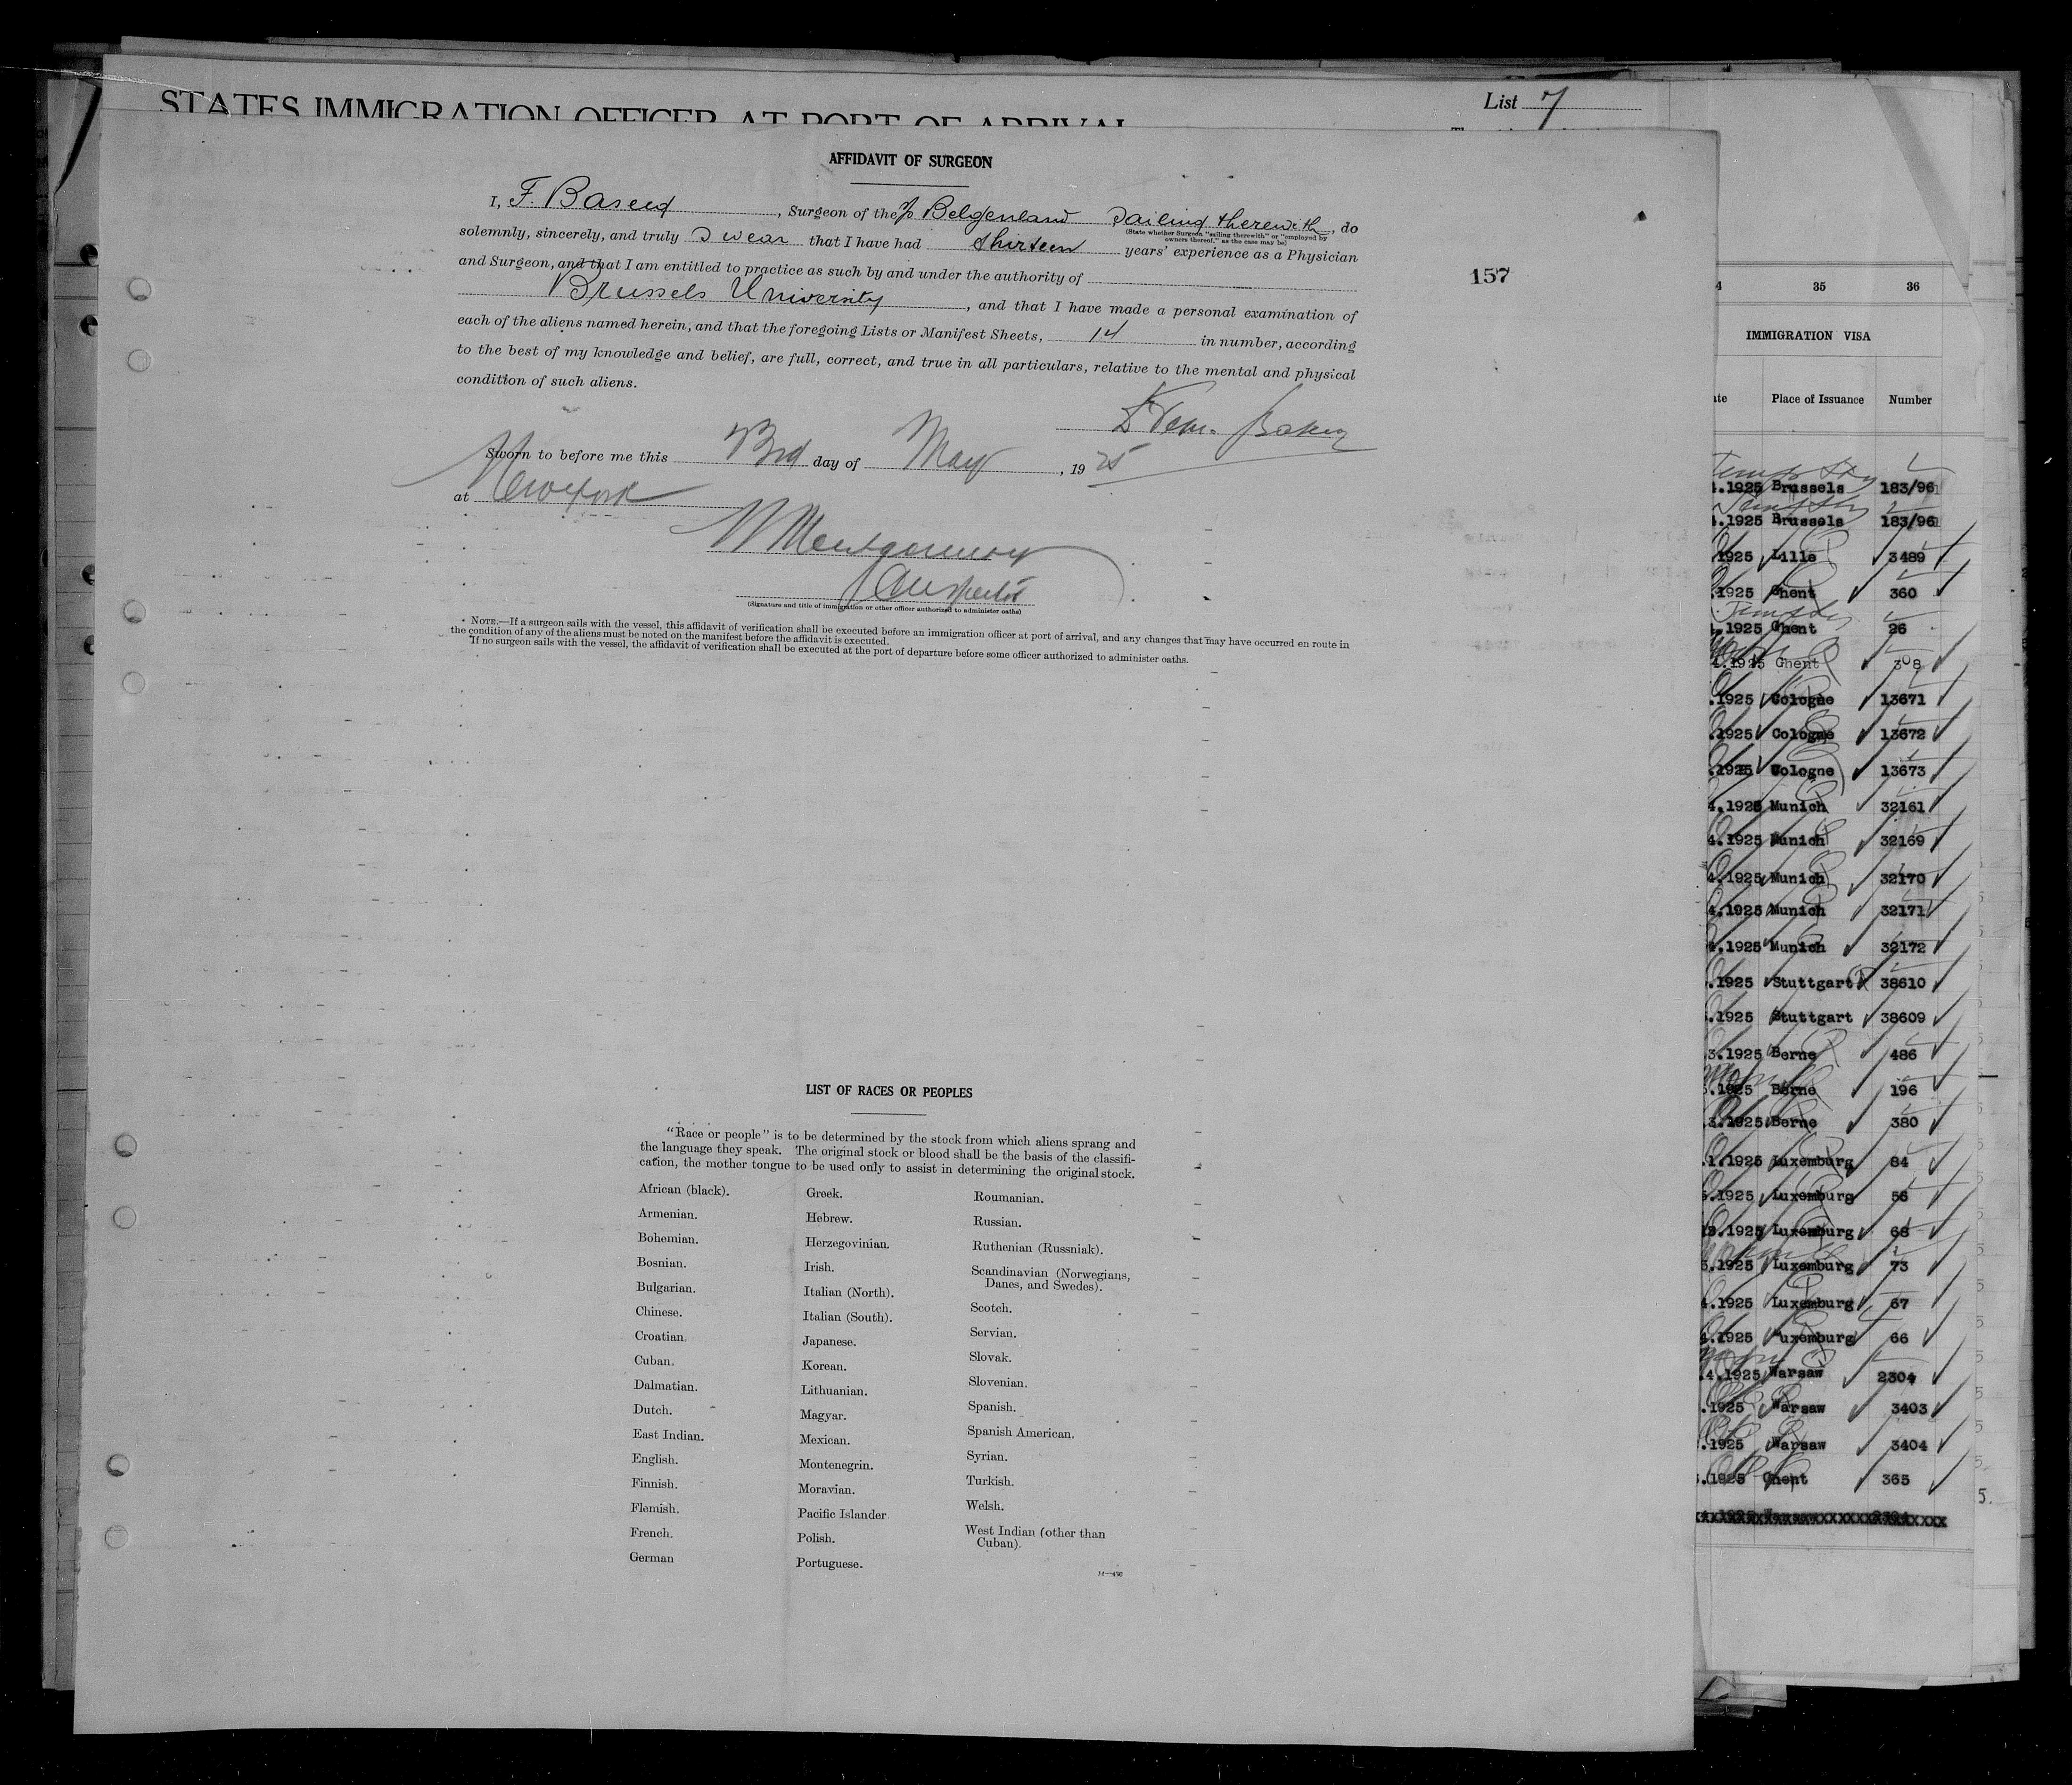 STATES IMMIGRATION OFFICER AT PORT OF ARRIVAL
List 7
AFFIDAVIT OF SURGEON
I, F. , Surgeon of the Belgenland Sailing therewith, do
(State whether Surgeon "sailing therewith" or "employed by
owners thereof," as the case may be)
solemnly, sincerely, and truly Swear that I have had thirteen years' experience as a Physician
and Surgeon, and that I am entitled to practice as such by and under the authority of
Brussels University, and that I have made a personal examination of
each of the aliens named herein, and that the foregoing Lists or Manifest Sheets, 14 in number, according
to the best of my knowledge and belief, are full, correct, and true in all particulars, relative to the mental and physical
condition of such aliens.
Sworn to before me this 3rd day of May, 1925
at New York
Montgomery
Inspector
(Signature and title of immigration or other officer authorized to administer oaths)
NOTE.—If a surgeon sails with the vessel, this affidavit of verification shall be executed before an immigration officer at port of arrival, and any changes that may have occurred en route in
the condition of any of the aliens must be noted on the manifest before the affidavit is executed.
If no surgeon sails with the vessel, the affidavit of verification shall be executed at the port of departure before some officer authorized to administer oaths.
157
LIST OF RACES OR PEOPLES
"Race or people" is to be determined by the stock from which aliens sprang and
the language they speak. The original stock or blood shall be the basis of the classifi-
cation, the mother tongue to be used only to assist in determining the original stock.
African (black).
Armenian.
Bohemian.
Bosnian.
Bulgarian.
Chinese.
Croatian.
Cuban.
Dalmatian.
Dutch.
East Indian.
English.
Finnish.
Flemish.
French.
German
Greek.
Hebrew.
Herzegovinian.
Irish.
Italian (North).
Italian (South).
Japanese.
Korean.
Lithuanian.
Magyar.
Mexican.
Montenegrin.
Moravian.
Pacific Islander
Polish.
Portuguese.
Roumanian.
Russian.
Ruthenian (Russniak).
Scandinavian (Norwegians,
Danes, and Swedes).
Scotch.
Servian.
Slovak.
Slovenian.
Spanish.
Spanish American.
Syrian.
Turkish.
Welsh.
West Indian (other than
Cuban).
35 36
IMMIGRATION VISA
Place of Issuance Number
.1925 Brussels 183/961
.1925 Brussels 183/961
.1925 Lille 3489
.1925 Ghent 360
.1925 Ghent 26
.1925 Ghent 308
.1925 Cologne 13671
.1925 Cologne 13672
.1925 Cologne 13673
4.1925 Munich 32161
4.1925 Munich 32169
4.1925 Munich 32170
4.1925 Munich 32171
4.1925 Munich 32172
.1925 Stuttgart 38610
.1925 Stuttgart 38609
3.1925 Berne 486
.1925 Berne 196
3.1925 Berne 380
1.1925 Luxemburg 84
.1925 Luxemburg 56
3.1925 Luxemburg 68
.1925 Luxemburg 73
4.1925 Luxemburg 67
4.1925 Luxemburg 66
.4.1925 Warsaw 2304
.1925 Warsaw 3403
.1925 Warsaw 3404
.1925 Ghent 365
5.